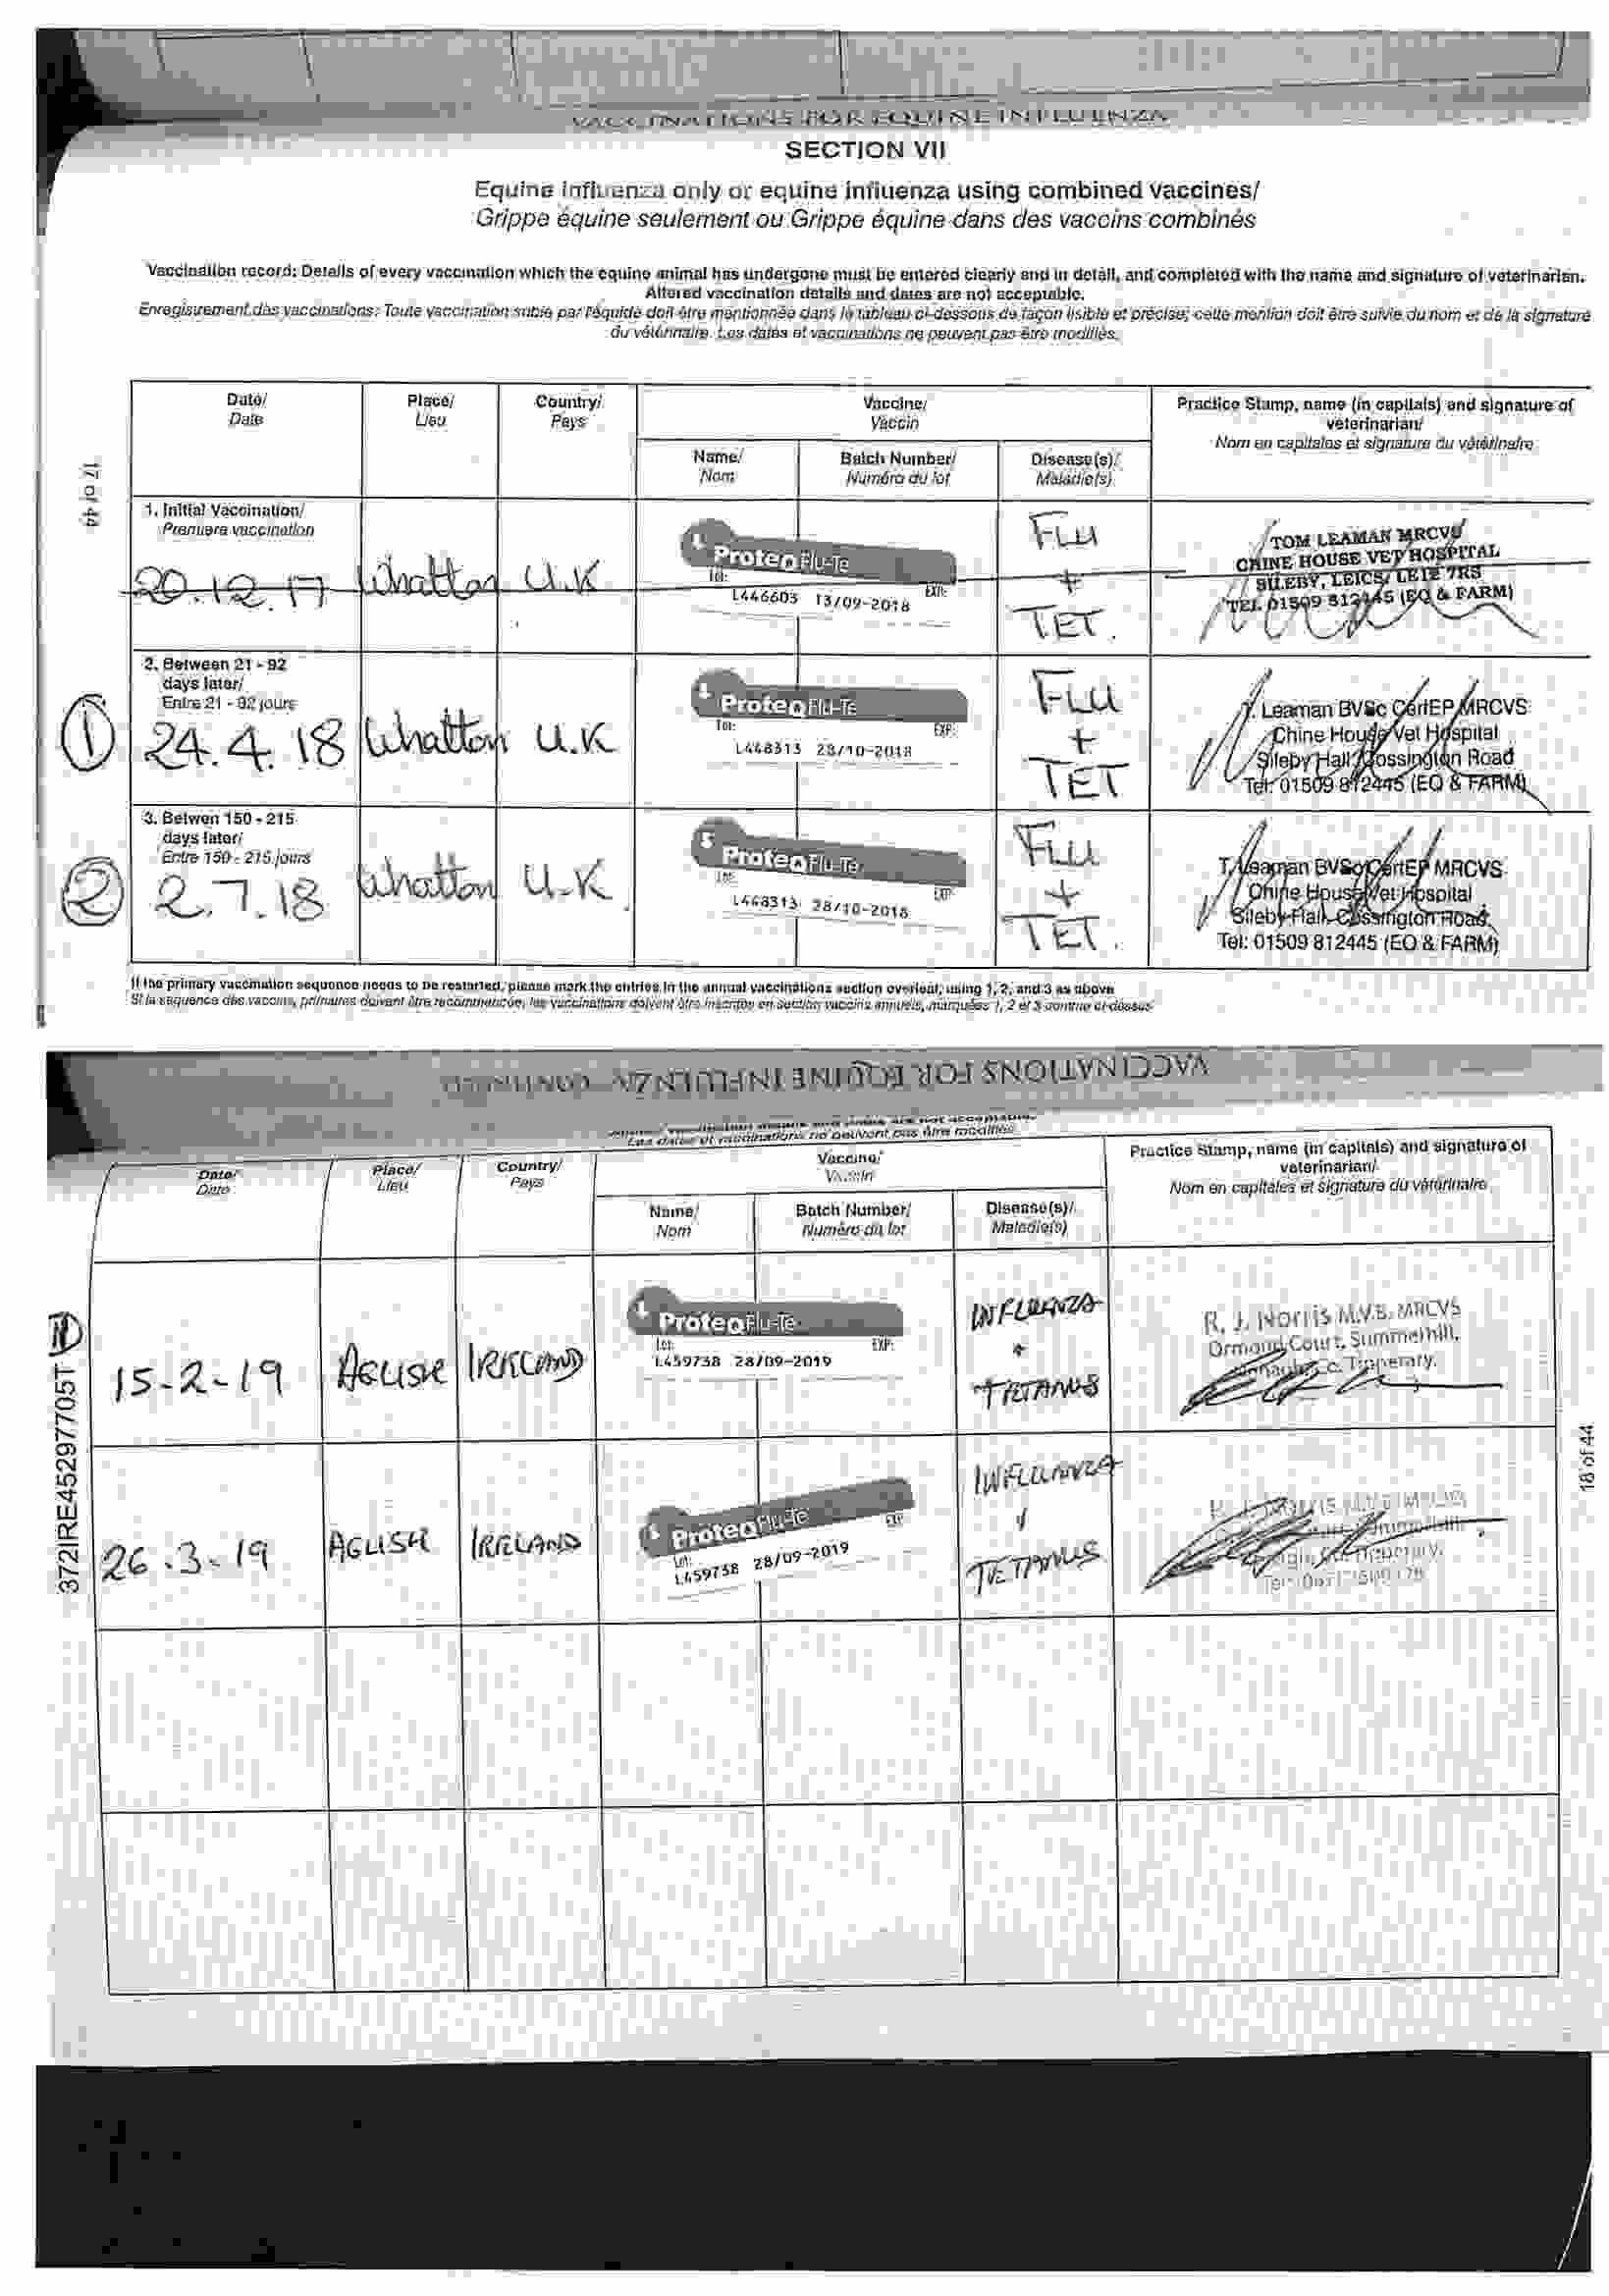 VACCINATIONS FOR EQUINE INFLUENZA
SECTION VII
Equine influenza only or equine influenza using combined vaccines/
Grippe équine seulement ou Grippe équine dans des vaccins combinés
Vaccination record: Details of every vaccination which the equine animal has undergone must be entered clearly and in detail, and completed with the name and signature of veterinarian.
Altered vaccination details and dates are not acceptable.
Enregistrement des vaccinations: Toute vaccination subie par l'équidé doit être mentionnée dans le tableau ci-dessous de façon lisible et précise; cette mention doit être suivie du nom et de la signature
du vétérinaire. Les dates et vaccinations ne peuvent pas être modifiés.
17 of 44
Date/ Place/ Country/ Vaccine/ Practice Stamp, name (in capitals) and signature of
Date Lieu Pays Vaccin veterinarian/
Nom en capitales et signature du vétérinaire
Name/ Batch Number/ Disease(s)/
Nom Numéro du lot Maladie(s)
1. Initial Vaccination/
Premiere vaccination
20.12.17 Whatton U.K
ProteqFlu-Te
Lot: EXP:
L446603 13/09-2018
FLU
+
TET.
TOM LEAMAN MRCVS
CHINE HOUSE VET HOSPITAL
SILEBY, LEICS, LE12 7RS
TEL 01509 812445 (EQ & FARM)
2. Between 21 - 92
days later/
Entre 21 - 92 jours
1 24.4.18 Whatton U.K
ProteqFlu-Te
Lot: EXP:
L448313 28/10-2018
FLU
+
TET
T. Leaman BVSc CertEP MRCVS
Chine House Vet Hospital
Sileby Hall, Cossington Road
Tel: 01509 812445 (EQ & FARM)
3. Betwen 150 - 215
days later/
Entre 150 - 215 jours
2 2.7.18 Whatton U.K.
ProteqFlu-Te
Lot: EXP:
L448313 28/10-2018
FLU
+
TET.
T. Leaman BVSc CertEP MRCVS
Chine House Vet Hospital
Sileby Hall, Cossington Road
Tel: 01509 812445 (EQ & FARM)
If the primary vaccination sequence needs to be restarted, please mark the entries in the annual vaccinations section overleaf, using 1, 2, and 3 as above
Si la séquence des vaccins, primaires doivent être recommencée, les vaccinations doivent être inscrites en section vaccins annuels, marquées 1, 2 et 3 comme ci-dessus
VACCINATIONS FOR EQUINE INFLUENZA CONTINUED
are not acceptable.
Les dates et vaccinations ne peuvent pas être modifiés
Date/ Place/ Country/ Vaccine/ Practice Stamp, name (in capitals) and signature of
Date Lieu Pays Vaccin veterinarian/
Nom en capitales et signature du vétérinaire
Name/ Batch Number/ Disease(s)/
Nom Numéro du lot Maladie(s)
372IRE45297705T
15-2-19 AGLISH IRELAND
ProteqFlu-Te
Lot: EXP:
L459738 28/09-2019
INFLUENZA
+
TETANUS
R. J. Norris M.V.B. MRCVS
Ormond Court, Summerhill,
Nenagh, Co. Tipperary.
26.3-19 AGLISH IRELAND
ProteqFlu-Te
Lot: EXP
L459738 28/09-2019
INFLUENZA
TETANUS
18 of 44